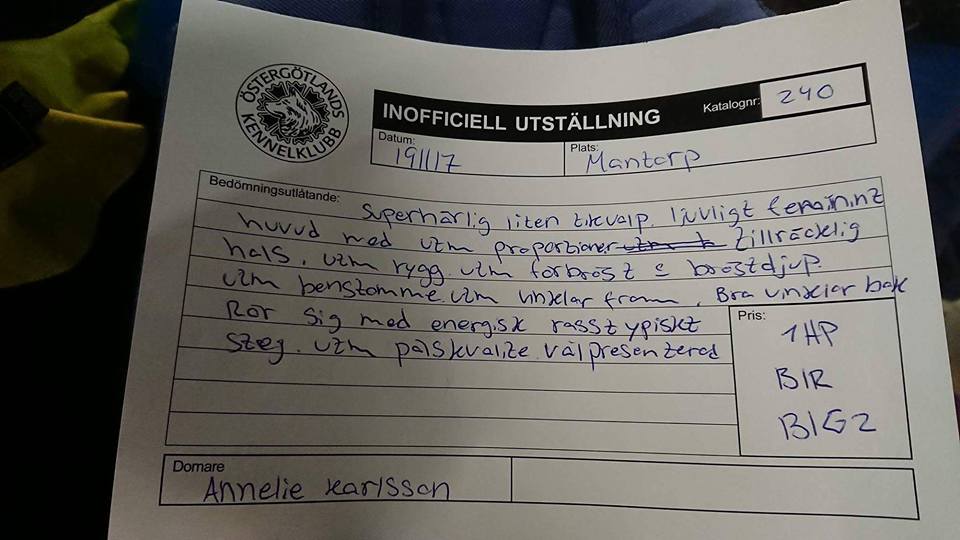 ÖSTERGÖTLANDS
KENNELKLUBB
INOFFICIELL UTSTÄLLNING
Katalognr: 240
Datum: 191117
Plats: Mantorp
Bedömningsutlåtande: Superhärlig liten tikvalp. ljuvligt feminint
huvud med utm proportioner tillräcklig
hals. utm rygg. utm förbröst & bröstdjup.
utm benstomme. utm vinklar fram, Bra vinklar bak
Rör sig med energisk rasstypiskt
steg. utm pälskvalite. välpresenterad
Pris:
1HP
BIR
BIG2
Domare
Annelie Karlsson